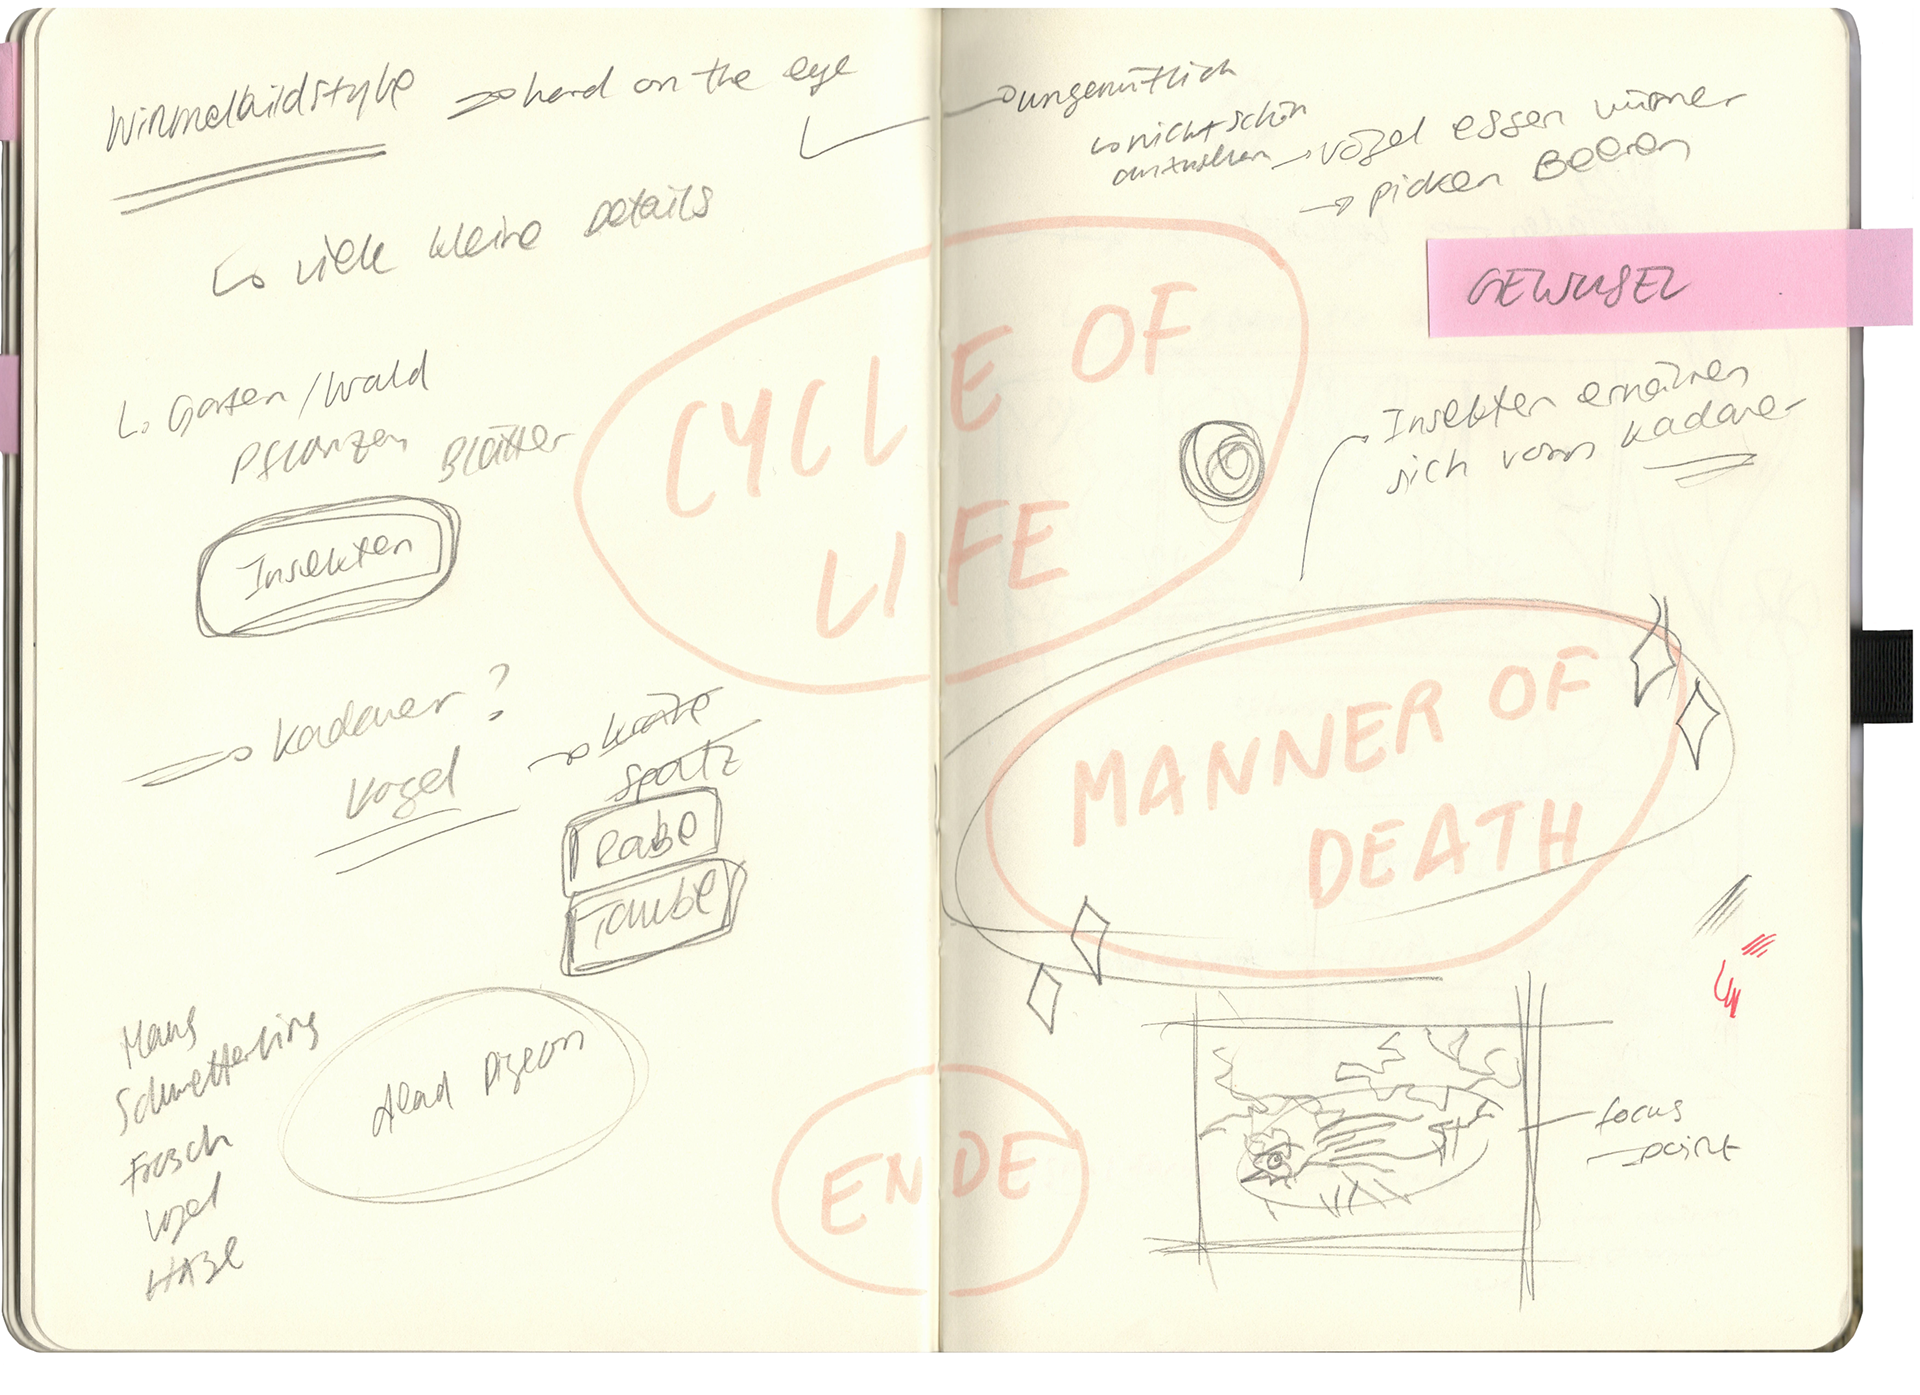 Wimmelbildstyle
hard on the eye
viele kleine Details
Garten/Wald
Pflanzen Blätter
Insekten
Kadaver?
Vogel
Krähe
Spatz
Rabe
Taube
Maus
Schmetterling
Frosch
Vogel
HASE
dead pigeon
ungemütlich
nicht schön
anzusehen
Vögel essen würmer
picken Beeren
GEWUSEL
CYCLE OF
LIFE
Insekten ernähren
sich vom Kadaver
MANNER OF
DEATH
ENDE
focus
point